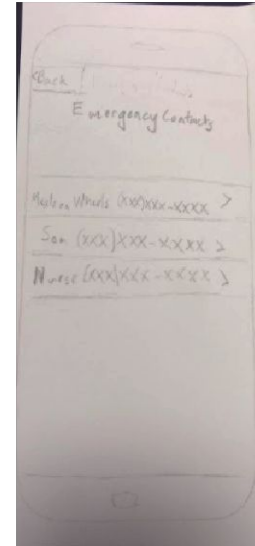 <Back
Emergency Contacts
Meals on Wheels (XXX)XXX-XXXX >
Son (XXX)XXX-XXXX >
Nurse (XXX)XXX-XXXX >